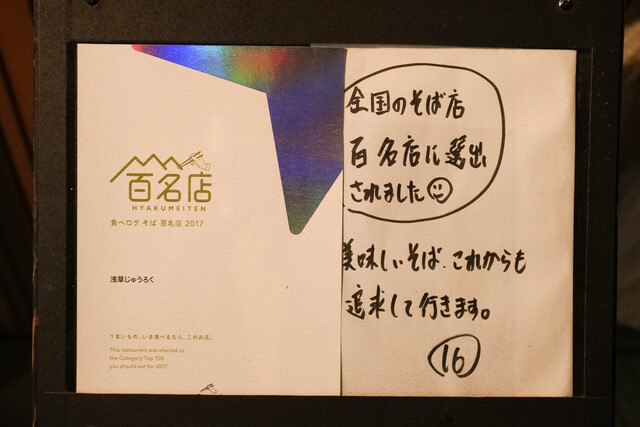 百名店
HYAKUMEITEN
食べログ そば 百名店 2017
浅草じゅうろく
うまいもの、いま食べるなら、このお店。
This restaurant was elected as
the Category Top 100
you should eat for 2017
全国のそば店
百名店に選出
されました
美味しいそば、これからも
追求して行きます。
16